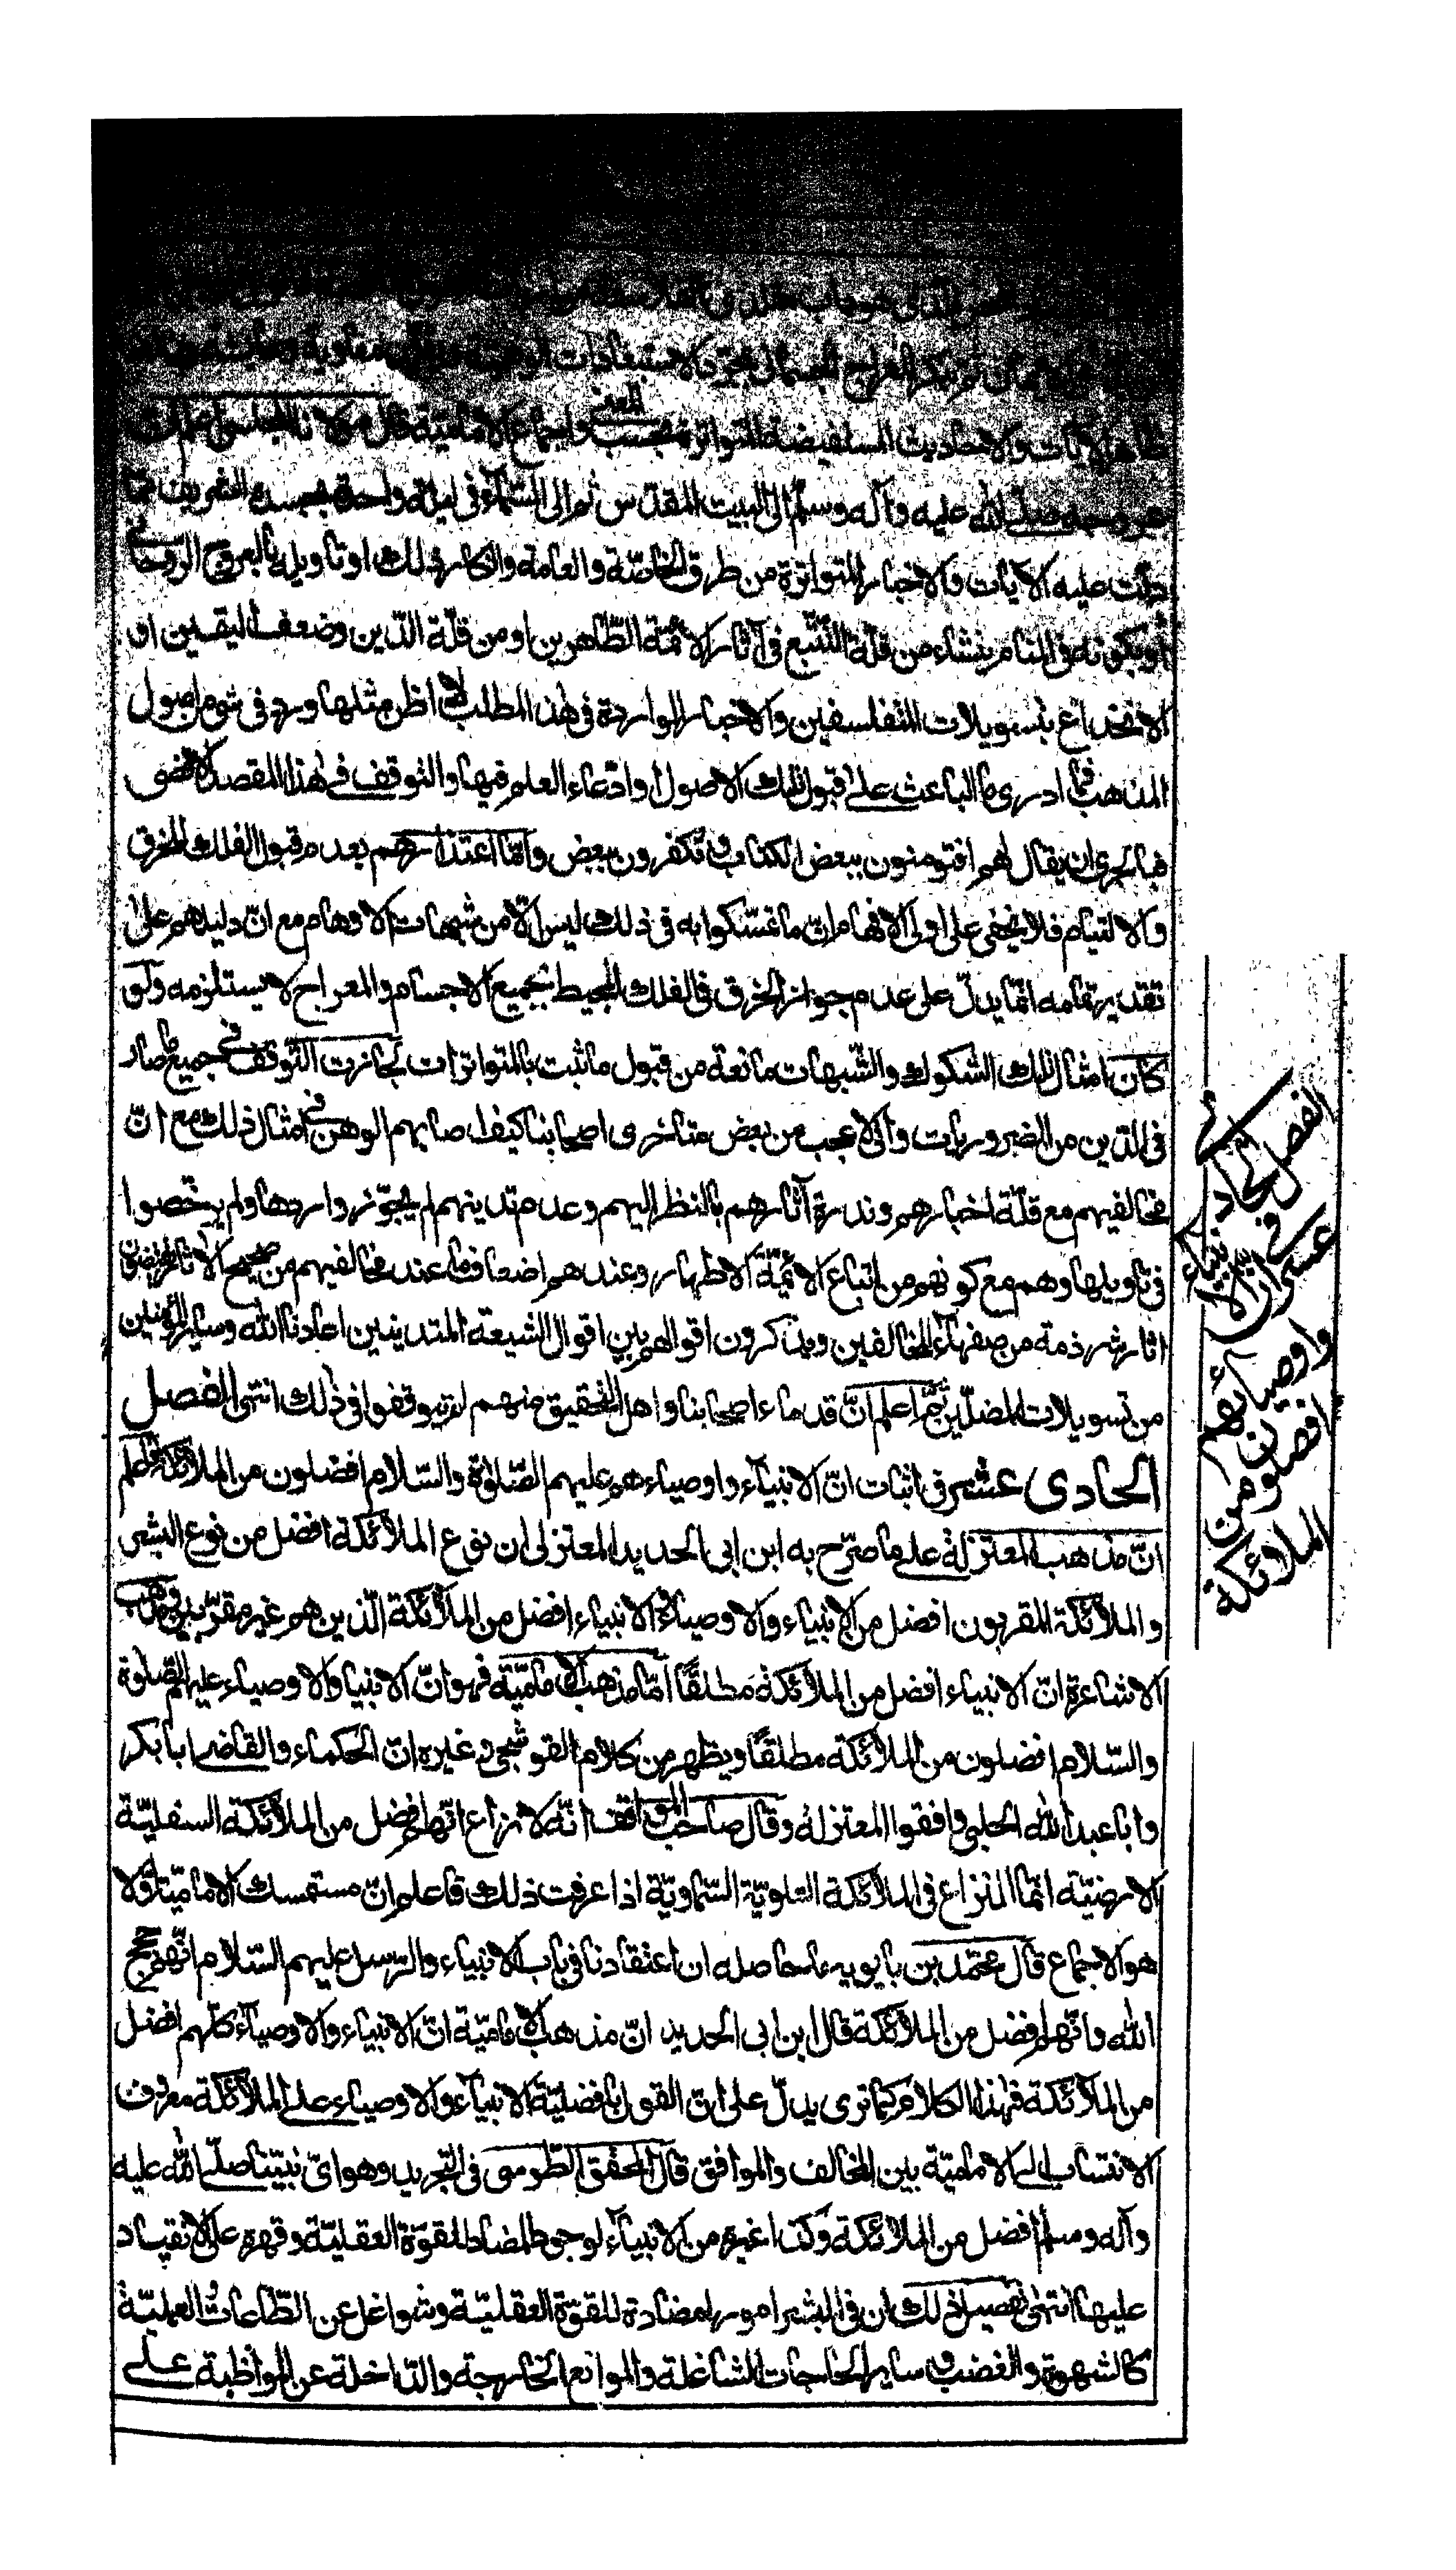 المعراج الجسماني بمجرد الاستبعادات معاوية
ظاهر الآيات والاحاديث المستفيضة المتواترة بحسب المعنى واجماع الامامية قال مولانا المجلسي اعلم ان
عروجه صلى الله عليه وآله وسلم الى البيت المقدس ثم الى السّماء في ليلة واحدة بجسده الشريف مما
دلّت عليه الآيات والاخبار المتواترة من طرق الخاصّة والعامة وانكار ذلك او تاويله بالعروج الروحاني
او بكونه في المنام ينشاء من قلّة التّتبّع في آثار الائمّة الطّاهرين او من قلّة الدّين وضعف اليقين او
الانخداع بتسويلات المتفلسفين والاخبار الواردة في هذا المطلب لا اظن مثلها ورد في شئ من اصول
المذهب فما ادري ما الباعث على قبول تلك الاصول وادّعاء العلم فيها والتوقف في هذا المقصد الاقصى
فبالحرى ان يقال لهم افتومنون ببعض الكتاب وتكفرون ببعض وامّا اعتذارهم بعدم قبول الفلك للخرق
والالتيام فلا يخفى على اولى الافهام انّ ما تمسّكوا به في ذلك ليس الّا من شبهات الاوهام مع انّ دليلهم على
تقدير تمامه انّما يدلّ على عدم جواز الخرق في الفلك المحيط بجميع الاجسام والمعراج لا يستلزمه ولو
كان امثال تلك الشكوك والشّبهات مانعة من قبول ما ثبت بالمتواترات لجازت التّوقف في جميع ما صار
في الدّين من الضروريات وانّى لاعجب من بعض متاخرى اصحابنا كيف اصابهم الوهن في امثال ذلك مع انّ
مخالفيهم مع قلّة اخبارهم وندرة آثارهم بالنظر اليهم وعدم تدينهم لم يجوّزوا ردها ولم يرخّصوا
في تاويلها وهم مع كونهم من اتباع الائمّة الاطهار وعندهم اضعاف ما عند مخالفيهم من صحيح الآثار يقتفون
اثار شرذمة من سفهاء المخالفين ويذكرون اقوالهم بين اقوال الشيعة المتدينين اعاذنا الله وساير المؤمنين
من تسويلات المضلّين ثمّ اعلم انّ قدماء اصحابنا واهل التّحقيق منهم لم يتوقفوا في ذلك انتهى الفصل
الحادى عشر في اثبات انّ الانبياء واوصياءهم عليهم الصّلوة والسّلام افضلون من الملائكة فاعلم
انّ مذهب المعتزلة على ما صرّح به ابن ابى الحديد المعتزلى ان نوع الملائكة افضل من نوع البشر
والملائكة المقربون افضل من الانبياء والاوصياء والانبياء افضل من الملائكة الّذين هم غير مقرّبين ومذهب
الاشاعرة انّ الانبياء افضل من الملائكة مطلقًا امّا مذهب الامامية فهو انّ الانبيا والاوصياء عليهم الصّلوة
والسّلام افضلون من الملائكة مطلقًا ويظهر من كلام القوشجى وغيره انّ الحكماء والقاضى ابا بكر
وابا عبد الله الحلبى وافقوا المعتزلة وقال صاحب المواقف انّه لا نزاع انّها افضل من الملائكة السفليّة
الارضيّة انّما النزاع في الملائكة العلويّة السّماويّة اذا عرفت ذلك فاعلم انّ مستمسك الامامية اوّلا
هو الاجماع قال محمّد بن بابويه ما حاصله ان اعتقادنا في باب الانبياء والرّسل عليهم السّلام انّهم حجج
الله وانّهم افضل من الملائكة قال ابن ابى الحديد انّ مذهب الامامية انّ الانبياء والاوصياء كلّهم افضل
من الملائكة فهذا الكلام كما ترى يدلّ على انّ القول بافضليّة الانبياء والاوصياء على الملائكة معروف
الانتساب الى الامامية بين المخالف والموافق قال المحقق الطّوسى في التّجريد وهو اىّ نبيّنا صلّى الله عليه
وآله وسلم افضل من الملائكة وكذا غيره من الانبياء لوجود المضاد للقوّة العقليّة وقهره على الانقياد
عليها انتهى تفصيل ذلك ان في البشر امورا مضادة للقوّة العقليّة وشواغل عن الطّاعات العمليّة
كالشهوة والغضب وساير الحاجات الشاغلة والموانع الخارجة والدّاخلة عن المواظبة على
الفصل الحادى
عشر في ان الانبياء
واوصيائهم
افضلون من
الملائكة